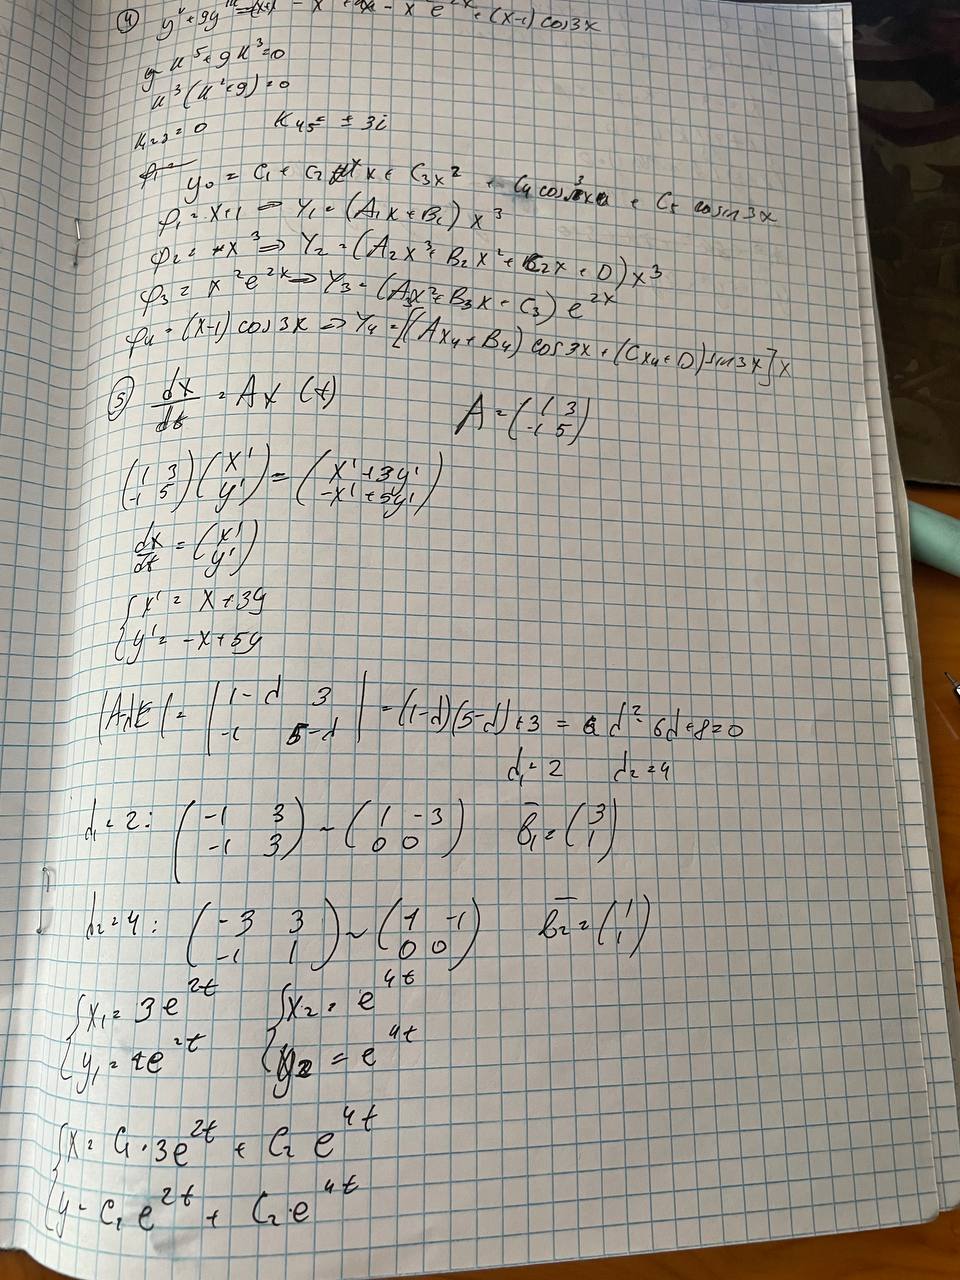 ④ y^v + 9y''' = - x - x² e^2x + (x-1) cos3x
k^5 + 9k^3 = 0
k^3 (k^2 + 9) = 0
k_1,2,3 = 0 k_4,5 = ± 3i
y_0 = C_1 + C_2 x + C_3 x^2 + C_4 cos 3x + C_5 sin 3x
φ_1 = x+1 ⇒ Y_1 = (A_1 x + B_1) x^3
φ_2 = -x^3 ⇒ Y_2 = (A_2 x^3 + B_2 x^2 + C_2 x + D) x^3
φ_3 = x^2 e^2x ⇒ Y_3 = (A_3 x^2 + B_3 x + C_3) e^2x
φ_4 = (x-1) cos 3x ⇒ Y_4 = [(Ax_4 + B_4) cos 3x + (Cx_4 + D) sin 3x] x
⑤ dx/dt = Ax (t) A = (1 3; -1 5)
(1 3; -1 5) (x'; y') = (x' + 3y'; -x' + 5y')
dx/dt = (x'; y')
{ x' = x + 3y
y' = -x + 5y
|A-dE| = | 1-d 3; -1 5-d | = (1-d)(5-d) + 3 = d^2 - 6d + 8 = 0
d_1 = 2 d_2 = 4
d_1 = 2 : (-1 3; -1 3) ~ (1 -3; 0 0) b_1 = (3; 1)
d_2 = 4 : (-3 3; -1 1) ~ (1 -1; 0 0) b_2 = (1; 1)
{ x_1 = 3e^2t { x_2 = e^4t
y_1 = 1e^2t y_2 = e^4t
{ x = C_1 · 3e^2t + C_2 e^4t
y = C_1 e^2t + C_2 · e^4t